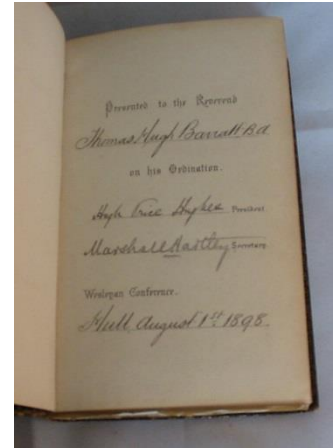 Presented to the Reverend
Thomas Hugh Barratt B.A
on his Ordination.
Hugh Price Hughes President
Marshall Hartley Secretary
Wesleyan Conference.
Hull, August 1st 1898.